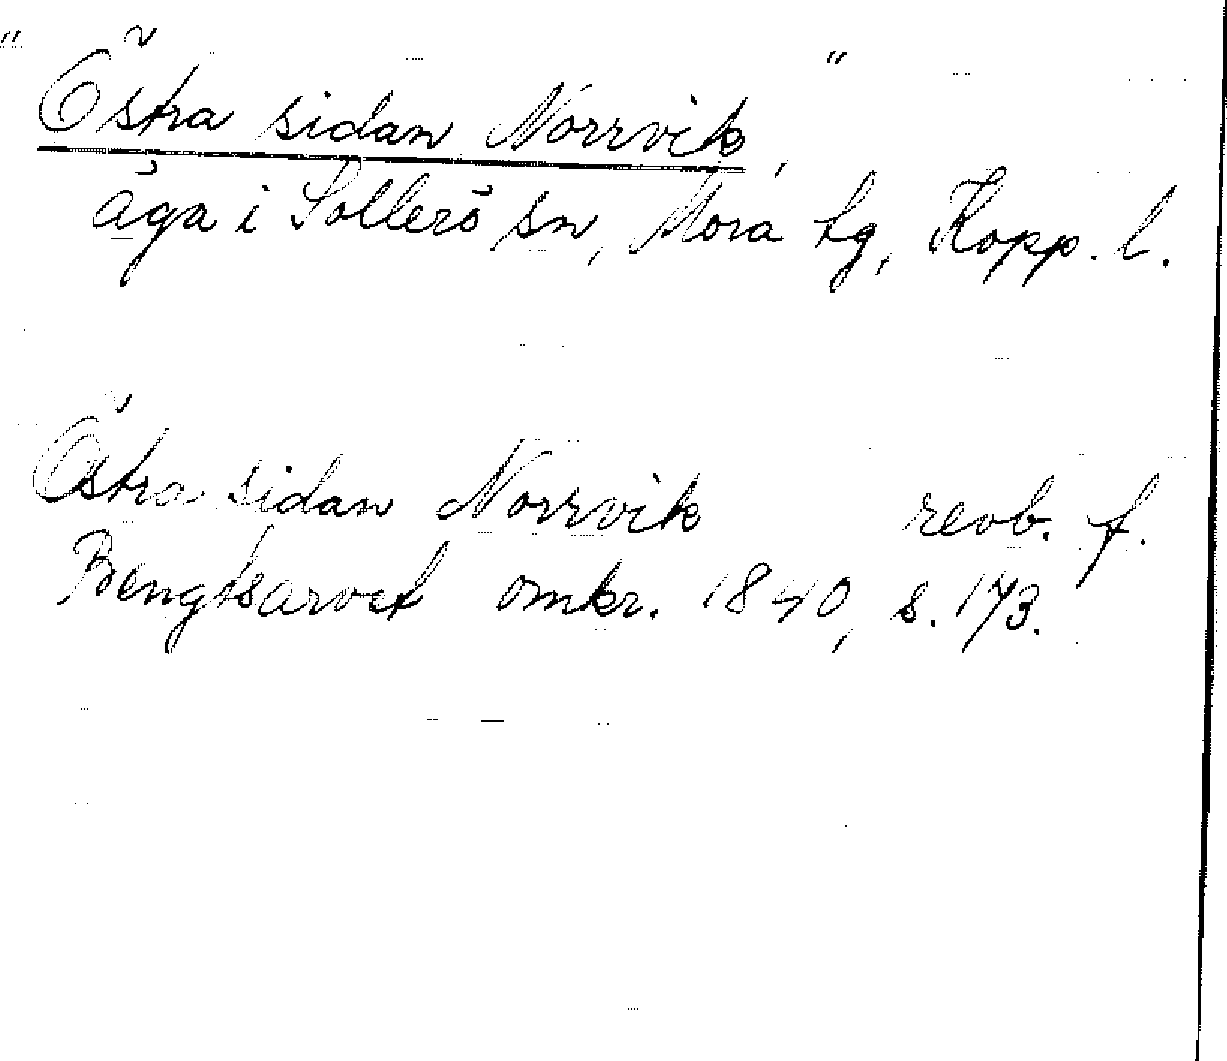 " Östra sidan Norrvik, "
äga i Sollerö sn, Mora tg, Kopp. l.
Östra sidan Norrvik revb. f.
Bengtsarvet omkr. 1840, s. 173.